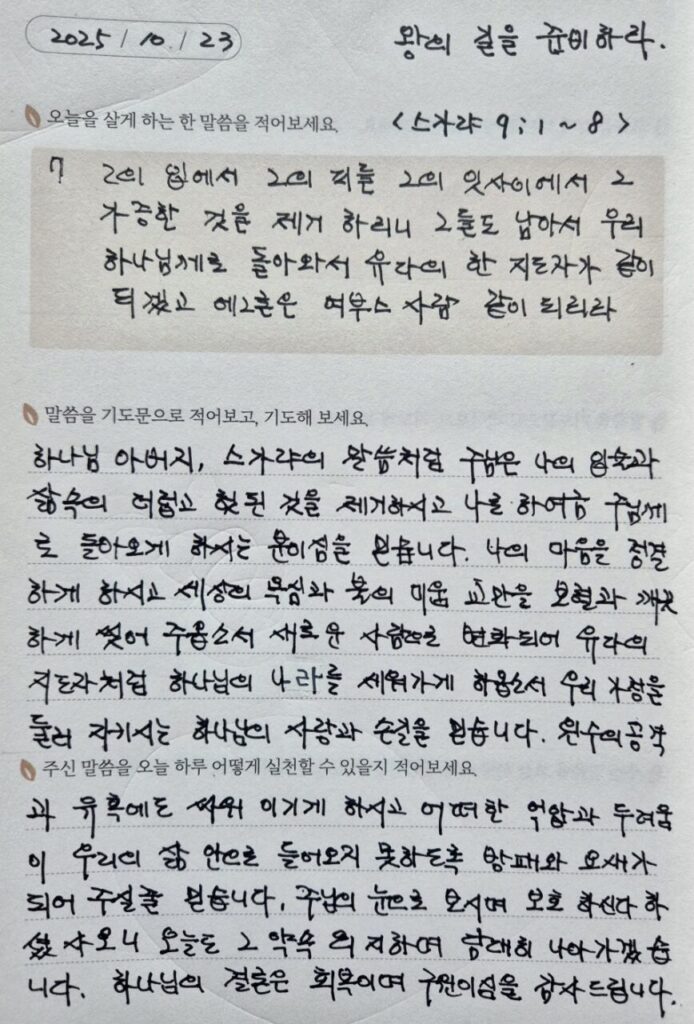 2025 / 10. / 23
왕의 길을 준비하라.
오늘을 살게 하는 한 말씀을 적어보세요.
<스가랴 9:1~8>
7 그의 입에서 그의 피를 그의 잇사이에서 그
가증한 것을 제거 하리니 그들도 남아서 우리
하나님께로 돌아와서 유다의 한 지도자가 같이
되겠고 에그론은 여부스 사람 같이 되리라
말씀을 기도문으로 적어보고, 기도해 보세요.
하나님 아버지, 스가랴의 말씀처럼 주님은 나의 입술과
삶속의 더럽고 헛된 것을 제거하시고 나로 하여금 주님께
로 돌아오게 하시는 분이심을 믿습니다. 나의 마음을 정결
하게 하시고 세상의 욕심과 미움 교만을 보혈과 깨끗
하게 씻어 주옵소서 새로운 사람으로 변화되어 유다의
지도자처럼 하나님의 나라를 세워가게 하옵소서 우리 가정을
둘러 지키시는 하나님의 사랑과 손길을 믿습니다. 원수의 공격
주신 말씀을 오늘 하루 어떻게 실천할 수 있을지 적어보세요.
과 유혹에도 싸워 이기게 하시고 어떠한 억압과 두려움
이 우리의 삶 안으로 들어오지 못하도록 방패와 요새가
되어 주실줄 믿습니다. 주님의 눈으로 보시며 보호 하신다 하
셨사오니 오늘도 그 약속 의지하며 담대히 나아가겠습
니다. 하나님의 결론은 회복이며 구원이심을 감사드립니다.